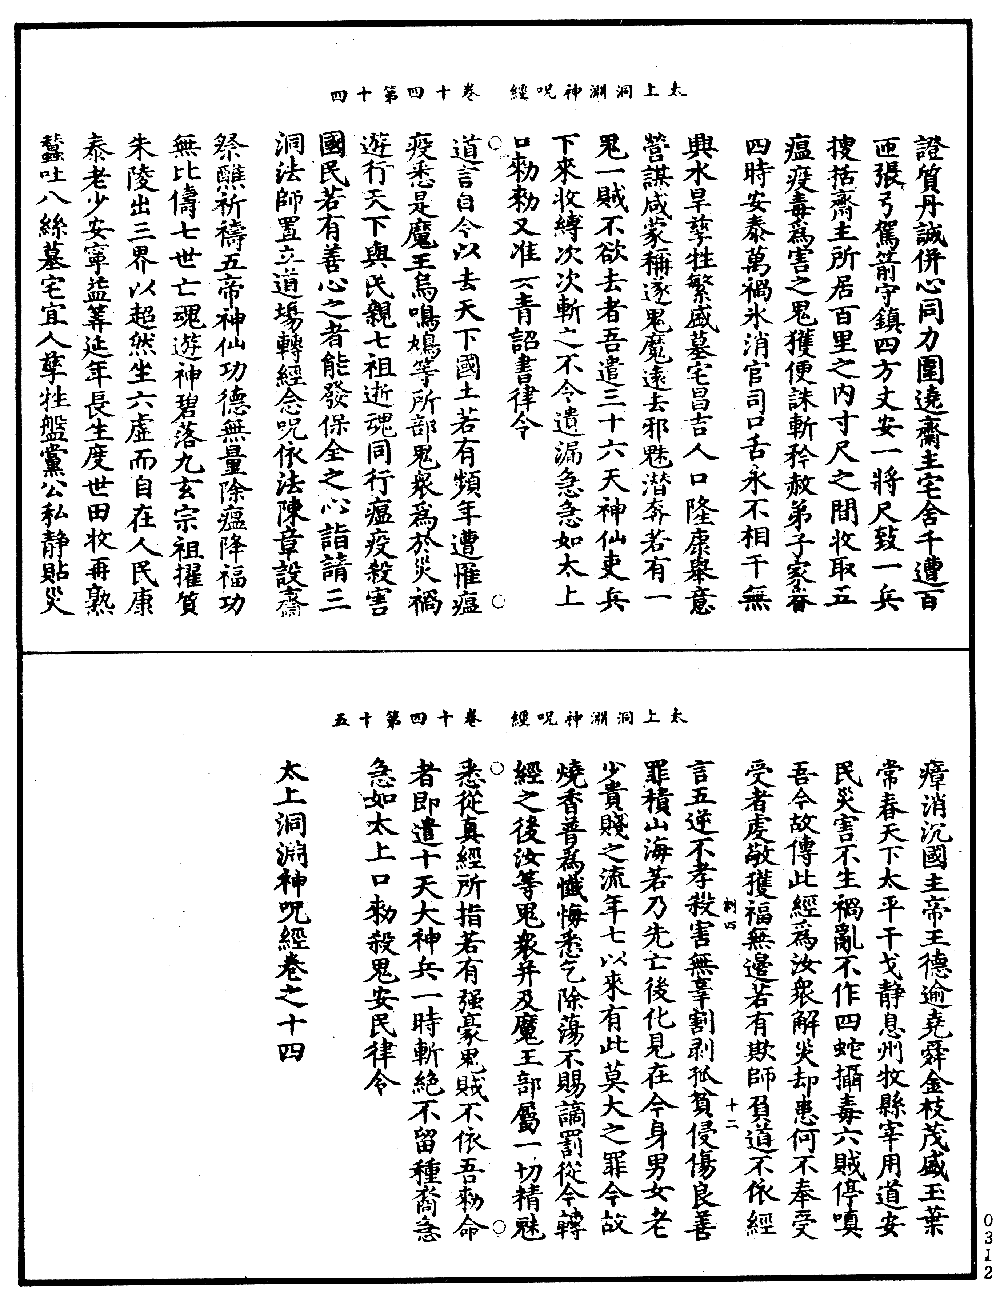 太上洞淵神呪經　卷十四第十四
證質丹誠併心同力圍遶齋主宅舍千遭百
匝張弓駕箭守鎮四方丈安一將尺致一兵
搜括齋主所居百里之內寸尺之間收取五
瘟疫毒為害之鬼獲便誅斬矜赦弟子家眷
四時安泰萬禍氷消官司口舌永不相干無
興水旱孳牲繁盛墓宅昌吉人口隆康舉意
營謀咸蒙稱遂鬼魔遠去邪魅潛奔若有一
鬼一賊不欲去者吾遣三十六天神仙吏兵
下來收縛次次斬之不令遺漏急急如太上
口勑勑又准六青詔書律令
道言自今以去天下國土若有頻年遭罹瘟
疫悉是魔王烏鳴鳩等所部鬼衆為於災禍
遊行天下與民親七祖逝魂同行瘟疫殺害
國民若有善心之者能發保全之心詣請三
洞法師置立道場轉經念呪依法陳章設齋
祭醮祈禱五帝神仙功德無量除瘟降福功
無比儔七世亡魂遊神碧落九玄宗祖擢質
朱陵出三界以超然生六虛而自在人民康
泰老少安寧益筭延年長生度世田收再熟
蠶吐八絲墓宅宜人孳牲盤黨公私靜貼災
太上洞淵神呪經　卷十四第十五
瘴消沉國主帝王德逾堯舜金枝茂盛玉葉
常春天下太平干戈靜息州牧縣宰用道安
民災害不生禍亂不作四蛇攝毒六賊停嗔
吾今故傳此經為汝衆解災却患何不奉受
受者虔敬獲福無邊若有欺師負道不依經
言五逆不孝殺害無辜割剥孤貧侵傷良善
罪積山海若乃先亡後化見在今身男女老
少貴賤之流年七以來有此莫大之罪今故
燒香普為懺悔悉乞除蕩不賜謫罰從今轉
經之後汝等鬼衆并及魔王部屬一切精魅
悉從真經所指若有强豪鬼賊不依吾勑命
者即遣十天大神兵一時斬絕不留種裔急
急如太上口勑殺鬼安民律令
太上洞淵神呪經卷之十四
十二
0312